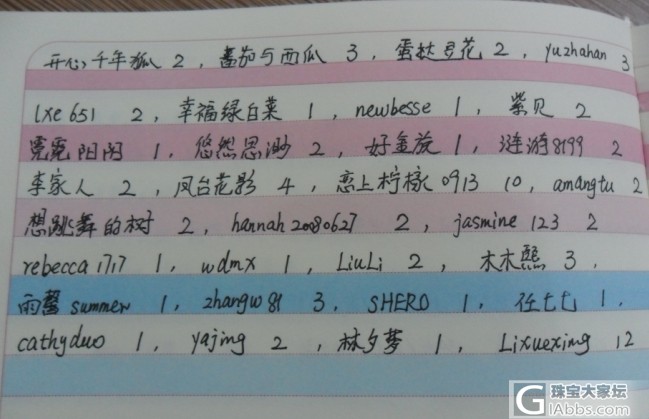 开心千年狐 2 , 番茄与西瓜 3 , 蛋挞豆花 2 , yuzhahan 3
lxe 651 2 , 幸福绿白菜 1 , newbesse 1 , 紫贝 2
霓霓阳阳 1 , 悠然思渺 2 , 好金旋 1 , 涟游8199 2
李家人 2 , 凤台花影 4 , 恋上柠檬0913 10 , amangtu 2
想跳舞的树 2 , hannah20080627 2 , jasmine 123 2
rebecca1717 1 , wdmx 1 , LiuLi 2 , 木木熙 3 .
雨馨summer 1 , zhangw81 3 , SHERO 1 , 任七七 1 .
cathyduo 1 , yajing 2 , 林夕梦 1 , Lixuexing 12
G 珠宝大家坛
lAbbs.com